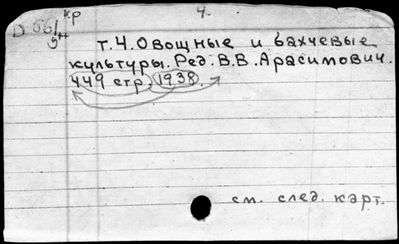 кр 4.
D 561
т.4. Овощные и бахчевые
культуры. Ред. В.В. Арасимович.
449 стр. 1938.
см. след. карт.